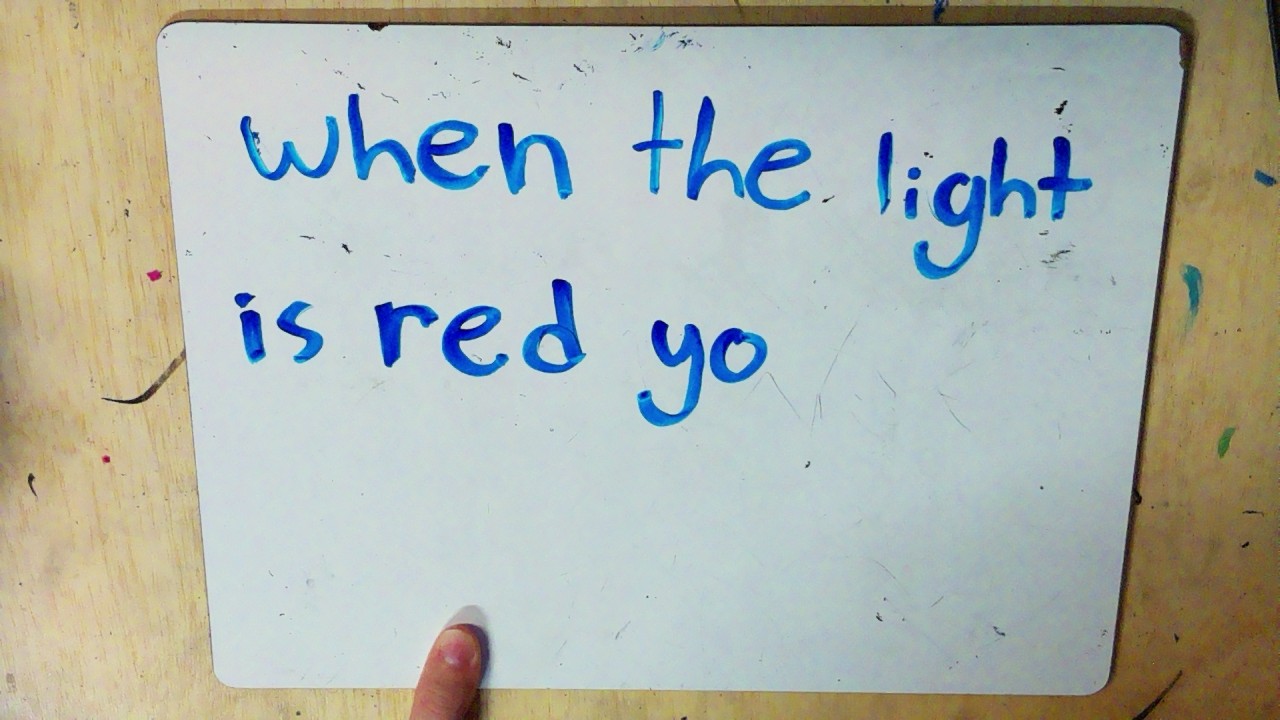 when the light
is red yo